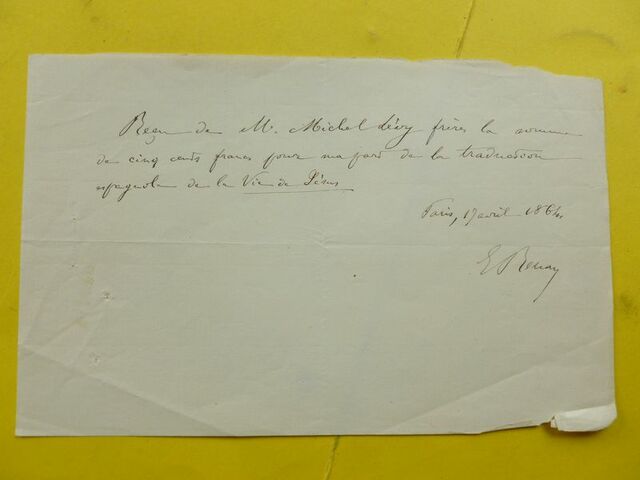 Reçu de M. Michel Lévy frères la somme
de cinq cents francs pour ma part de la traduction
espagnole de la Vie de Jésus
Paris, 17 avril 1864
E Renan